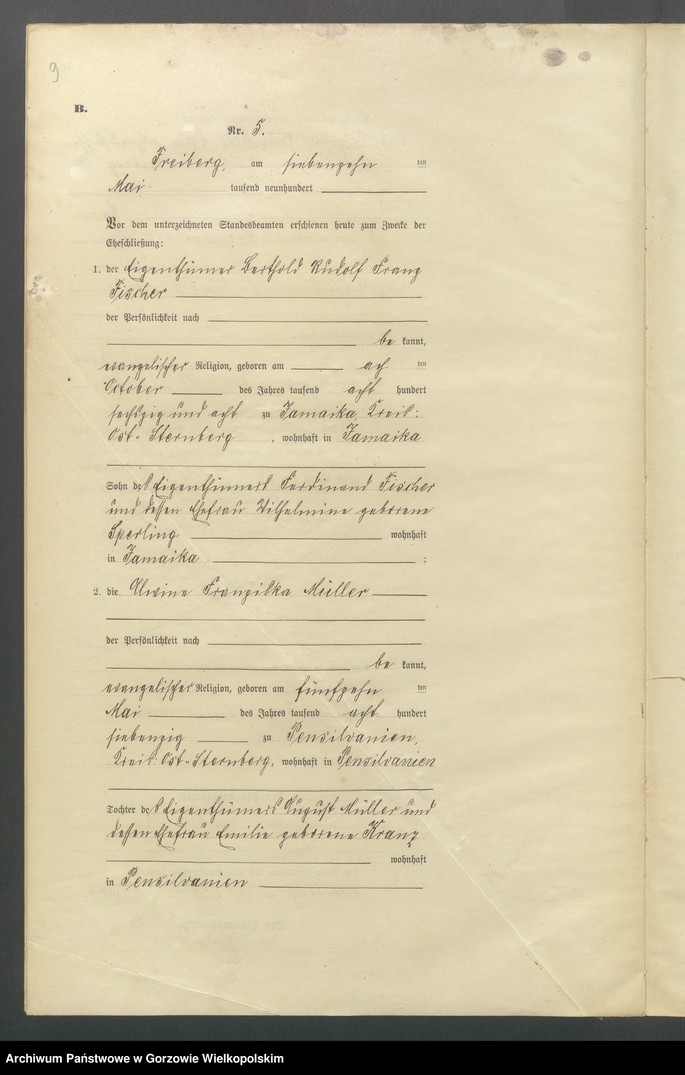 9
B.
Nr. 5.
Freiberg, am siebenzehn ten
Mai tausend neunhundert
Vor dem unterzeichneten Standesbeamten erschienen heute zum Zwecke der
Eheschließung:
1. der Eigenthümer Berthold Rudolf Franz
Fischer
der Persönlichkeit nach
be kannt,
evangelischer Religion, geboren am ach ten
October des Jahres tausend acht hundert
sechszig und acht zu Jamaika, Kreis:
Ost-Sternberg, wohnhaft in Jamaika
Sohn des Eigenthümers Ferdinand Fischer
und dessen Ehefrau Wilhelmine geborene
Sperling wohnhaft
in Jamaika ;
2. die Franziska Müller
der Persönlichkeit nach
be kannt,
evangelischer Religion, geboren am fünfzehn ten
Mai des Jahres tausend acht hundert
siebenzig zu Pensilvanien,
Kreis: Ost-Sternberg, wohnhaft in Pensilvanien
Tochter des Eigenthümers August Müller und
dessen Ehefrau Emilie geborene Kranz
wohnhaft
in Pensilvanien
Archiwum Państwowe w Gorzowie Wielkopolskim